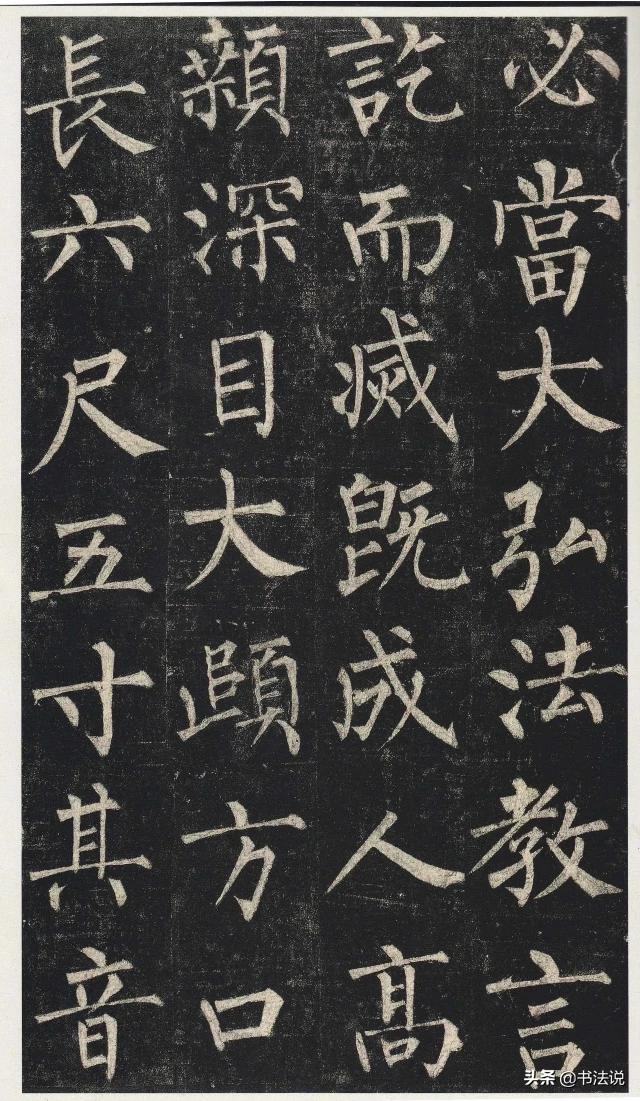 必當大弘法教言
訖而滅旣成人高
顙深目大頤方口
長六尺五寸其音
头条 @书法说